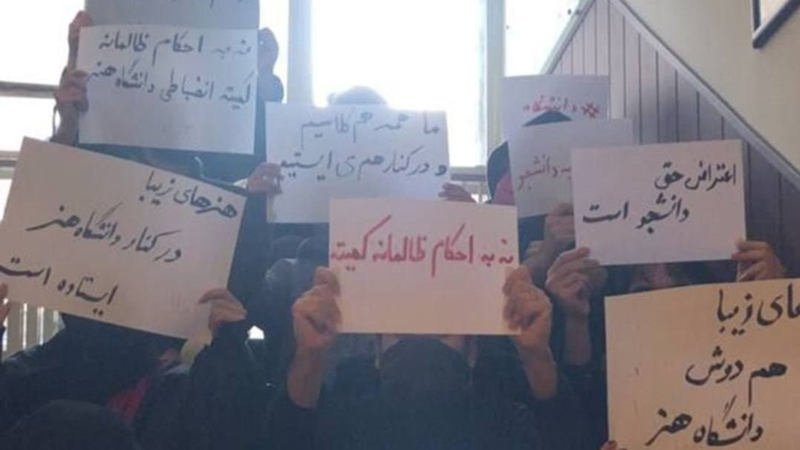 نه به احکام ظالمانه
کمیته انضباطی دانشگاه هنر
ما همه هم کلاسیم
و در کنار هم می ایستیم
# دانشگاه
به دانشجو
اعتراض حق
دانشجو است
هنرهای زیبا
در کنار دانشگاه هنر
ایستاده است
نه به احکام ظالمانه کمیته
های زیبا
هم دوش
دانشگاه هنر